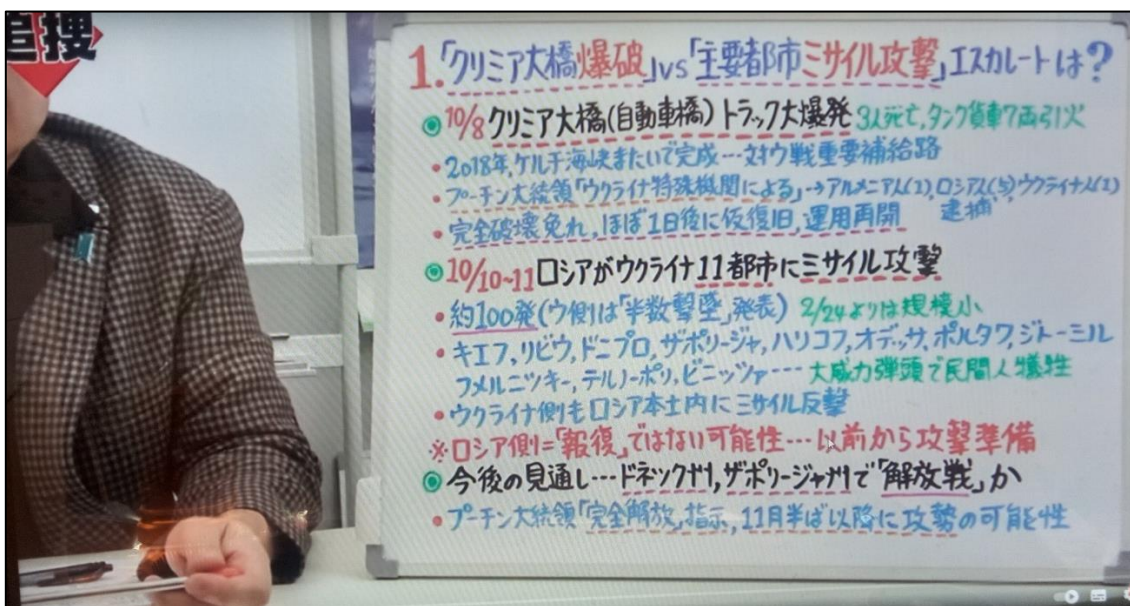 追捜
1.「クリミア大橋爆破」vs「主要都市ミサイル攻撃」エスカレートは?
◎10/8 クリミア大橋(自動車橋)トラック大爆発 3人死亡,タンク貨車7両引火
・2018年,ケルチ海峡またいで完成…対ウ戦重要補給路
・プーチン大統領「ウクライナ特殊機関による」→アルメニア人(1),ロシア人(5),ウクライナ人(2)
逮捕
・完全破壊免れ,ほぼ1日後に仮復旧,運用再開
◎10/10~11 ロシアがウクライナ11都市にミサイル攻撃
・約100発(ウ側は「半数撃墜」発表) 2/24よりは規模小
・キエフ,リビウ,ドニプロ,ザポリージャ,ハリコフ,オデッサ,ポルタワ,ジトーミル
フメルニツキー,テルノーポリ,ビニッツァ…大威力弾頭で民間人犠牲
・ウクライナ側もロシア本土内にミサイル反撃
※ロシア側=「報復」ではない可能性…以前から攻撃準備
◎今後の見通し…ドネツク州,ザポリージャ州で「解放戦」か
・プーチン大統領「完全解放」指示,11月半ば以降に攻勢の可能性